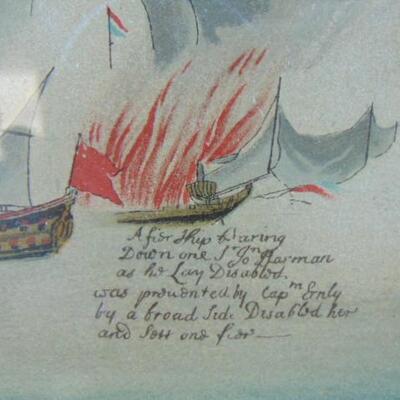 A fier Ship bearing
Down one Sr Jn Harman
as he Lay Disabled.
was prevented by Capm Ernly
by a broad Side Disabled her
and Sett one fier